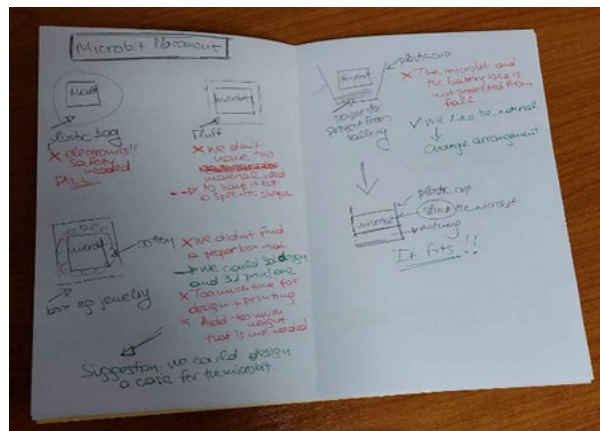 Microbit Placement
Microbit
plastic bag
X electronics!!
safety
needed
microbit
fluff
X We don't
have the
material need
to have it at
a specific shape
microbit
cotton
box eg jewelry
X We did not find
a proper box that
→ we could 3d design
and 3d print one
X Too much time for
design + printing
X Add too much
weight
that is not needed
Suggestion: we could design
a case for the microbit.
microbit
plastic cup
paper to
protect from
falling
X The microbit and
the battery case is
not protected from
fall
✓ We like the normal
change arrangement
plastic cup
microbit
the microbit
It fits!!